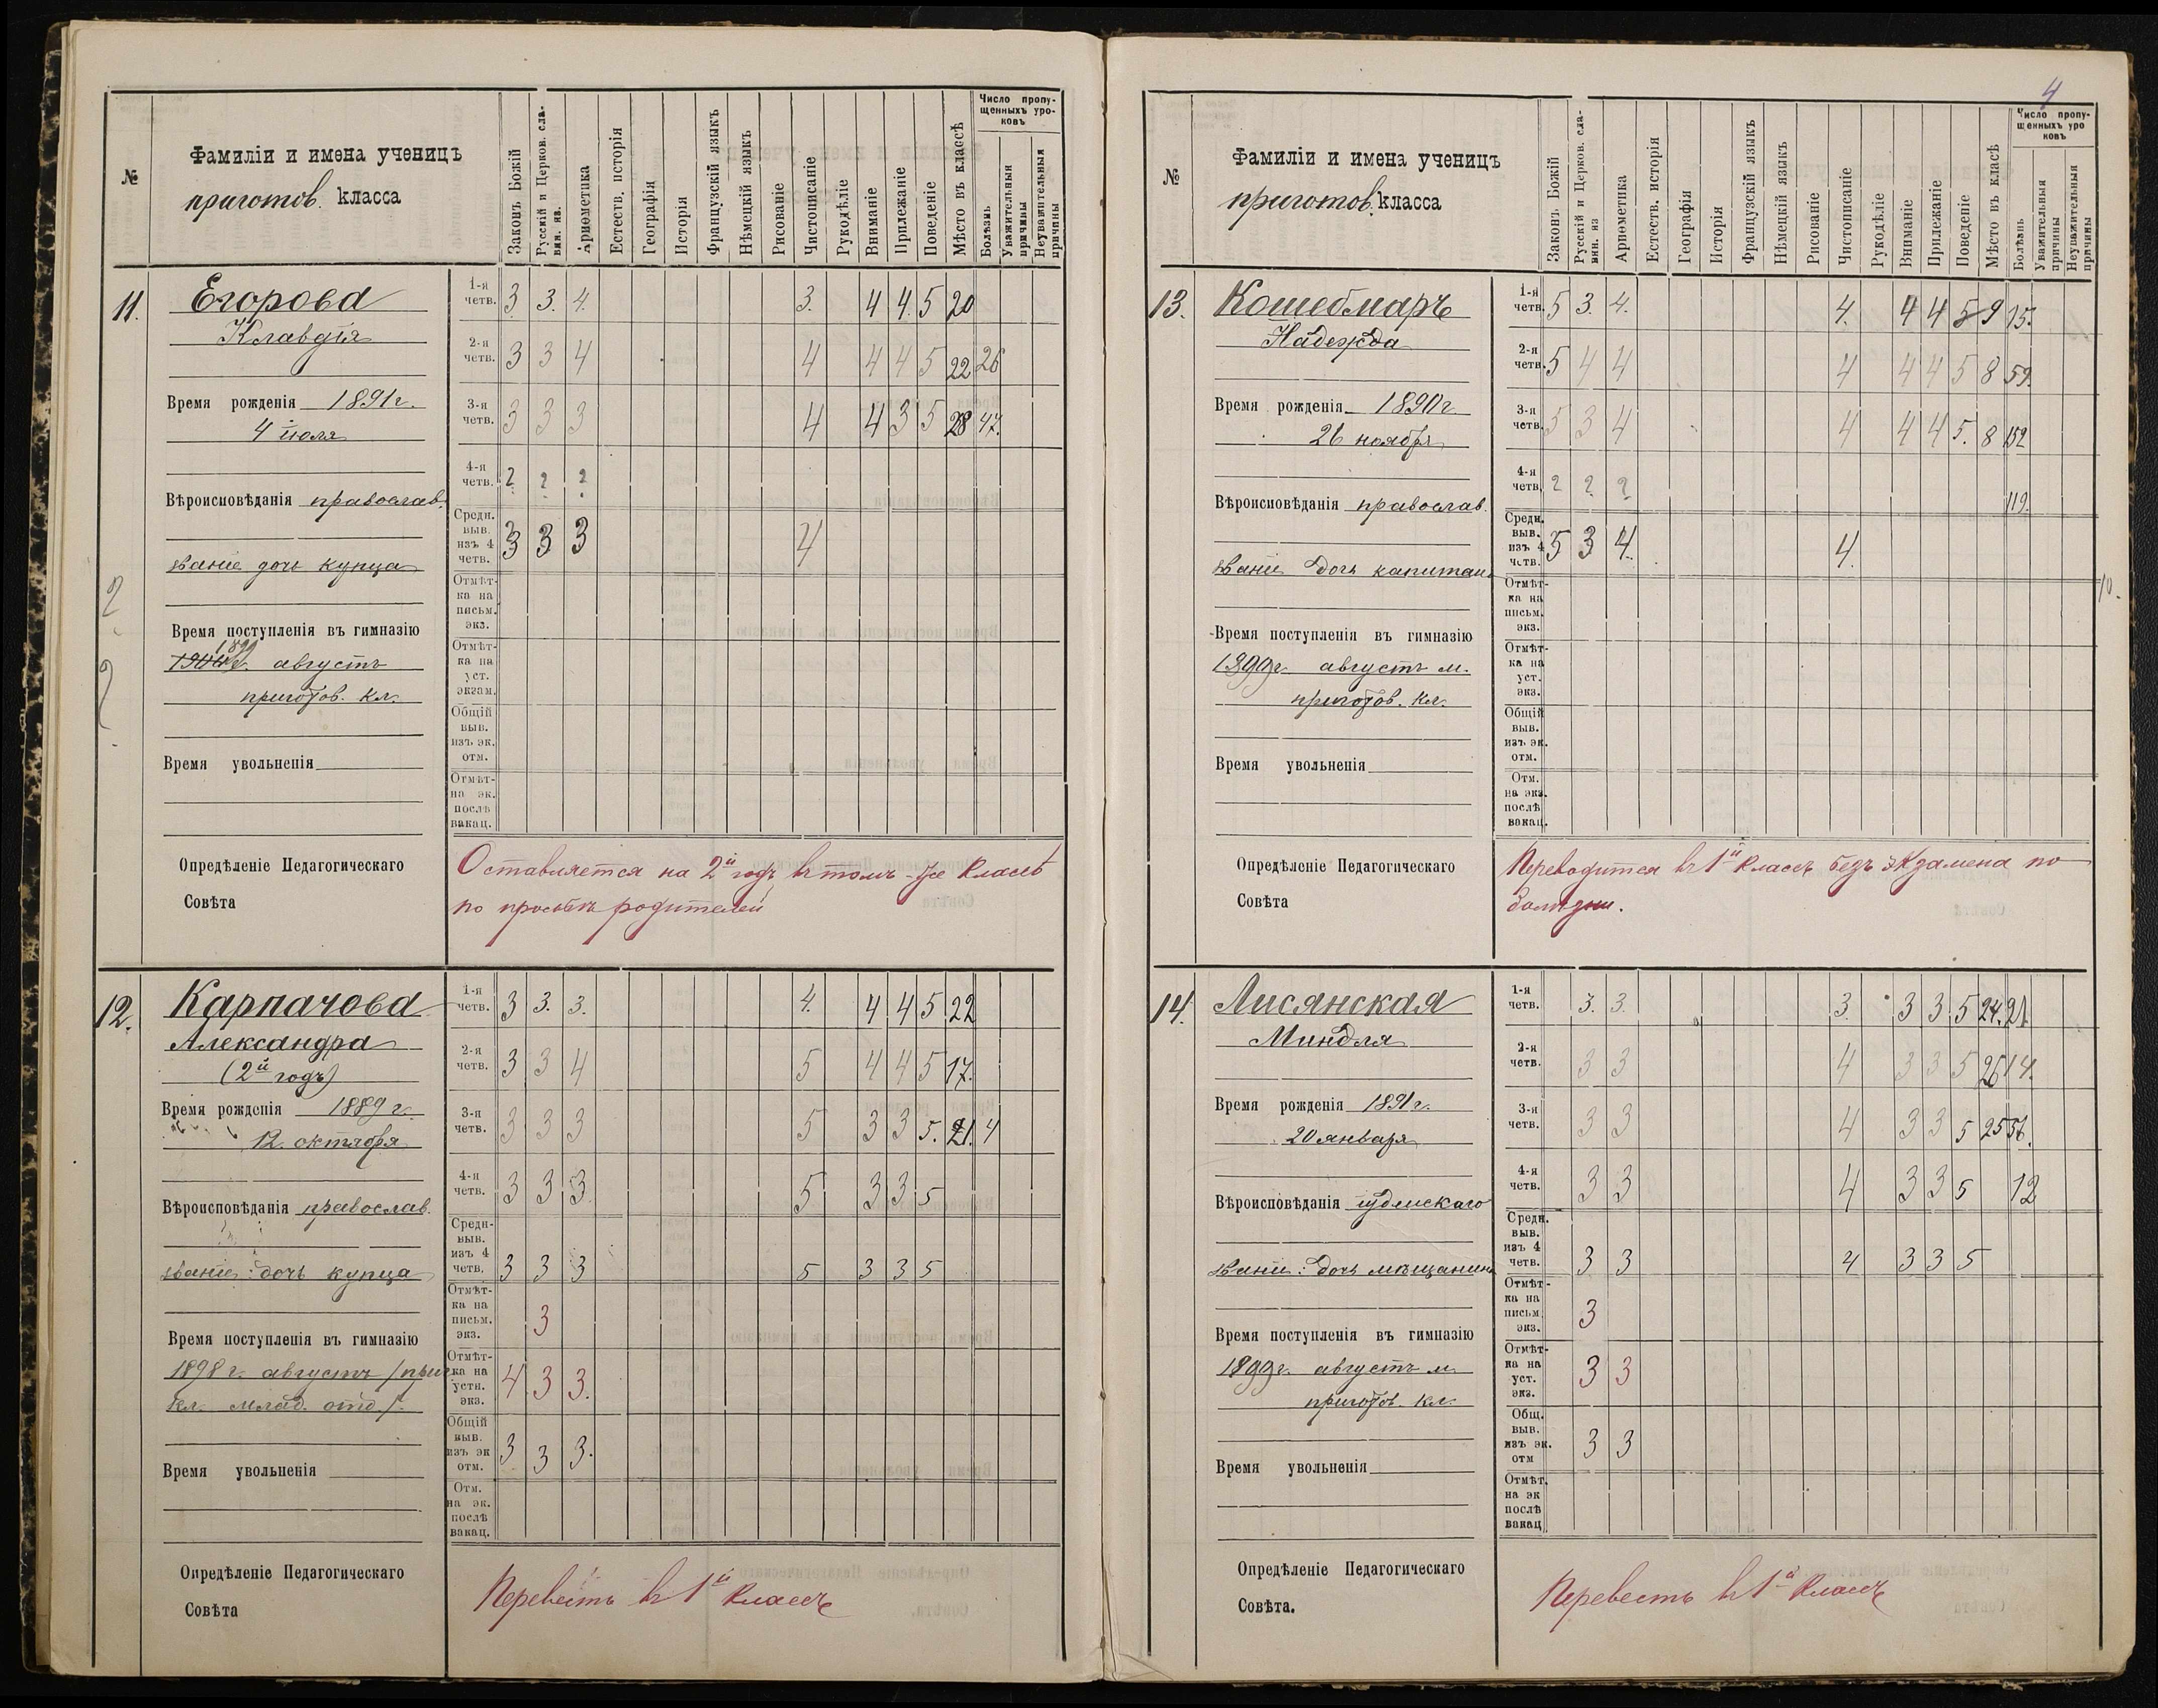 4
№
Фамиліи и имена ученицъ
приготов. класса
Законъ Божій
Русскій и Церков. сла-
вян. яз.
Ариѳметика
Естеств. исторія
Географія
Исторія
Французскій языкъ
Нѣмецкій языкъ
Рисованіе
Чистописаніе
Рукодѣліе
Вниманіе
Прилежаніе
Поведеніе
Мѣсто въ классѣ
Число пропу-
щенныхъ уро-
ковъ
Болѣзнь
Уважительныя
причины
Неуважительныя
причины
11.
Егорова
Клавдія
Время рожденія 1891 г.
4 іюля
Вѣроисповѣданія православ.
званіе дочь купца
Время поступленія въ гимназію
1899 г. августъ
приготов. кл.
Время увольненія
1-я четв. 3 3. 4. 3. 4 4. 5 20
2-я четв. 3 3 4 4 4 4 5 22 26
3-я четв. 3 3 3 4 4 3 5 28 47.
4-я четв. ? ? ?
Средн. выв. изъ 4 четв. 3 3 3 4
Отмѣт-ка на письм. экз.
Отмѣт-ка на уст. экзам.
Общій выв. изъ эк. отм.
Отмѣт- на эк. послѣ вакац.
Опредѣленіе Педагогическаго
Совѣта
Оставляется на 2й годъ въ томъ-же классѣ
по просьбѣ родителей
12.
Карпачова
Александра
(2й годъ)
Время рожденія 1889 г.
12 октября
Вѣроисповѣданія православ.
званіе: дочь купца
Время поступленія въ гимназію
1898 г. августъ /приг.
кл. млад. отд./.
Время увольненія
1-я четв. 3 3. 3. 4. 4 4 5 22
2-я четв. 3 3 4 5 4 4 5 17.
3-я четв. 3 3 3 5 3 3 5. 21. 4
4-я четв. 3 3 3 5 3 3 5
Средн- выв. изъ 4 четв. 3 3 3 5 3 3 5
Отмѣт-ка на письм. экз. 3
Отмѣт-ка на устн. экз. 4 3 3.
Общій выв. изъ эк отм. 3 3 3.
Отм. на эк. послѣ вакац.
Опредѣленіе Педагогическаго
Совѣта
Перевесть въ 1й классъ
№
Фамиліи и имена ученицъ
приготов. класса
Законъ Божій
Русскій и Церков. сла-
вян. яз
Ариѳметика
Естеств. исторія
Географія
Исторія
Французскій языкъ
Нѣмецкій языкъ
Рисованіе
Чистописаніе
Рукодѣліе
Вниманіе
Прилежаніе
Поведеніе
Мѣсто въ класѣ
Число пропу-
щенныхъ уро
ковъ
Болѣзнь
Уважительныя
причины
Неуважительныя
причины
13.
Кошебмаръ
Надежда
Время рожденія 1890 г
26 ноября
Вѣроисповѣданія православ.
званіе дочь капитан.
Время поступленія въ гимназію
1899 г. августъ м.
приготов. кл.
Время увольненія
1-я четв. 5 3. 4. 4. 4 4 5 9 15.
2-я четв. 5 4 4 4 4 4 5 8 59.
3-я четв. 5 3 4 4 4 4 5. 8 152
4-я четв. ? ? ? 119.
Средн. выв. изъ 4 четв. 5 3 4. 4.
Отмѣт-ка на письм. экз.
Отмѣт-ка на уст. экз.
Общій выв. изъ эк. отм.
Отм. на экз. послѣ вакац.
Опредѣленіе Педагогическаго
Совѣта
Переводится въ 1й классъ безъ экзамена по
болѣзни.
14.
Лисянская
Миндля
Время рожденія 1891 г.
20 января
Вѣроисповѣданія іудейскаго
званіе: дочь мѣщанина
Время поступленія въ гимназію
1899 г. августъ м
приготов. кл.
Время увольненія
1-я четв. 3. 3. 3. 3 3 5 24. 21.
2-я четв. 3 3 4 3 3 5 26 14.
3-я четв. 3 3 4 3 3 5 25 56.
4-я четв. 3 3 4 3 3 5 12
Средн. выв. изъ 4 четв. 3 3 4 3 3 5
Отмѣт-ка на письм. экз. 3
Отмѣт-ка на уст. экз. 3 3
Общ. выв. изъ эк. отм 3 3
Отмѣт. на эк послѣ вакац
Опредѣленіе Педагогическаго
Совѣта.
Перевесть въ 1й классъ